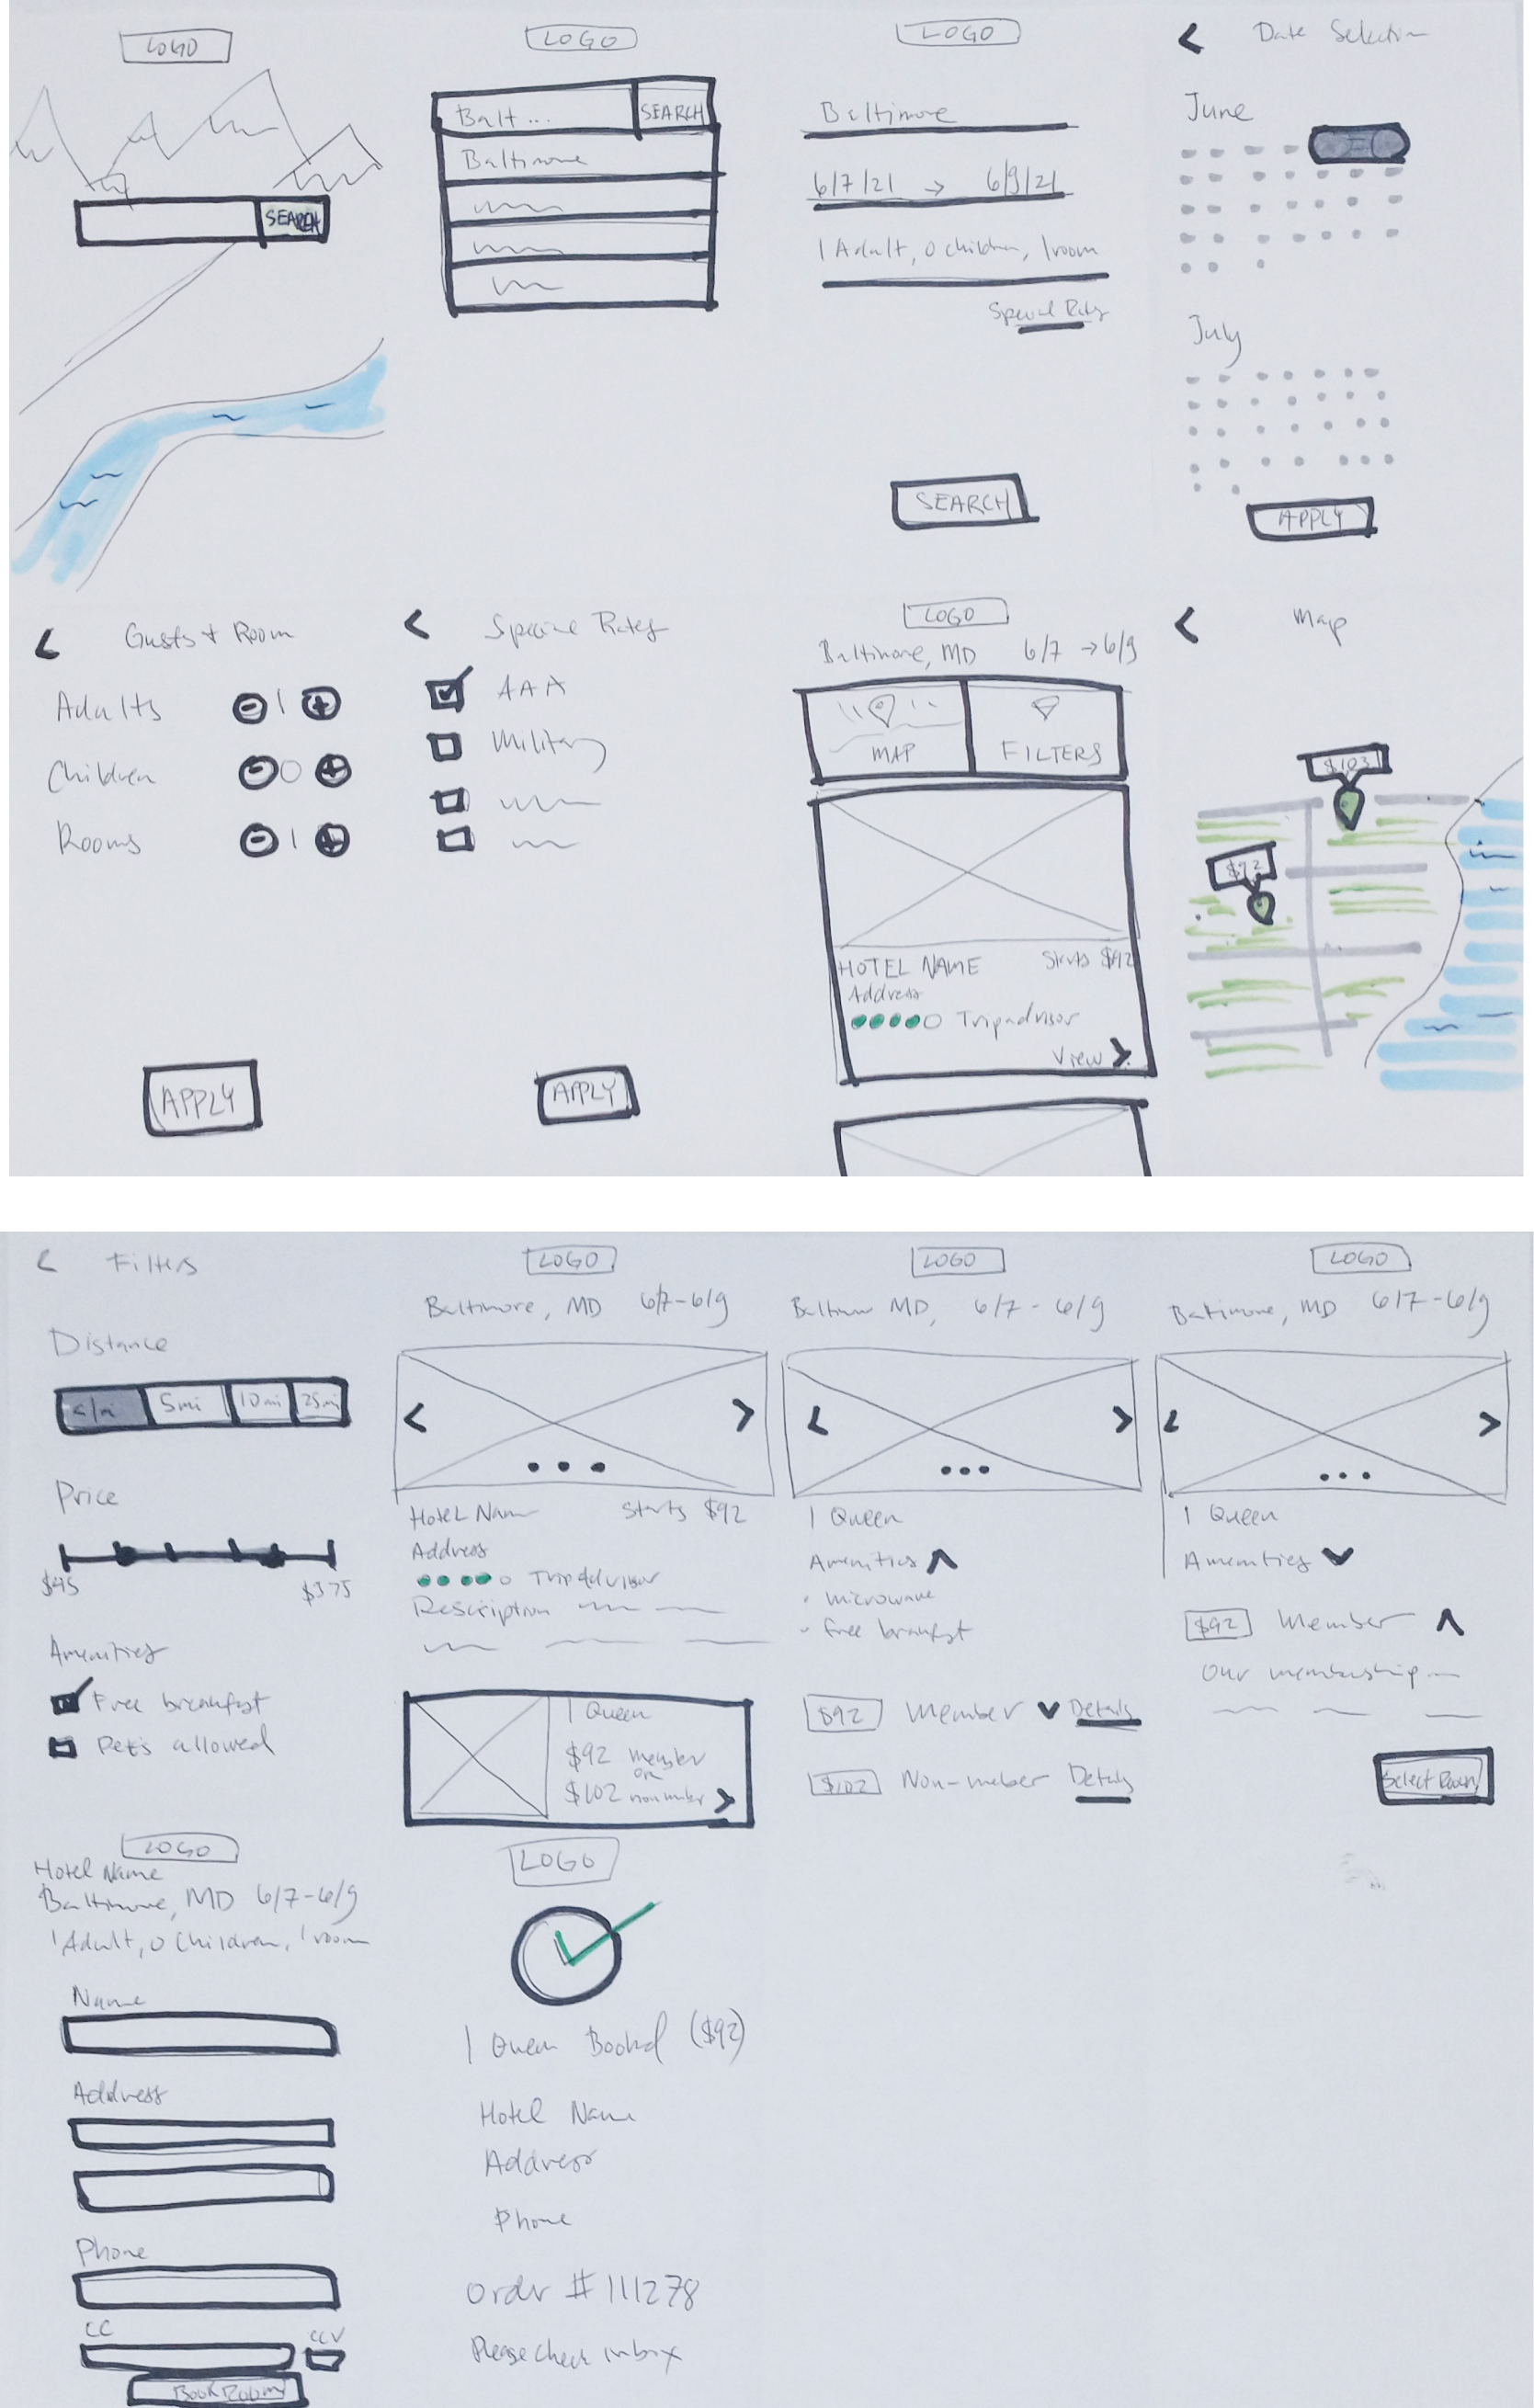 LOGO
SEARCH
LOGO
Balt... SEARCH
Baltimore
LOGO
Baltimore
6/7/21 → 6/9/21
1 Adult, 0 children, 1 room
Special Rates
SEARCH
< Date Selection
June
July
APPLY
< Guests + Room
Adults - 1 +
Children - 0 +
Rooms - 1 +
APPLY
< Special Rates
AAA
Military
APPLY
LOGO
Baltimore, MD 6/7 → 6/9
MAP FILTERS
HOTEL NAME Starts $92
Address
Tripadvisor
View >
< Map
$103
$92
< Filters
Distance
<1mi 5mi 10mi 25mi
Price
$45 $375
Amenities
Free breakfast
Pets allowed
LOGO
Baltimore, MD 6/7-6/9
< >
Hotel Name Starts $92
Address
Tripadvisor
Description
1 Queen
$92 member
or
$102 nonmember >
LOGO
Baltimore MD, 6/7 - 6/9
< >
1 Queen
Amenities
• microwave
• free breakfast
$92 Member Details
$102 Non-member Details
LOGO
Baltimore, MD 6/7-6/9
< >
1 Queen
Amenities
$92 Member
Our membership
Select Room
LOGO
Hotel Name
Baltimore, MD 6/7-6/9
1 Adult, 0 Children, 1 room
Name
Address
Phone
CC CCV
Book Room
LOGO
1 Queen Booked ($92)
Hotel Name
Address
Phone
Order #111278
Please check inbox